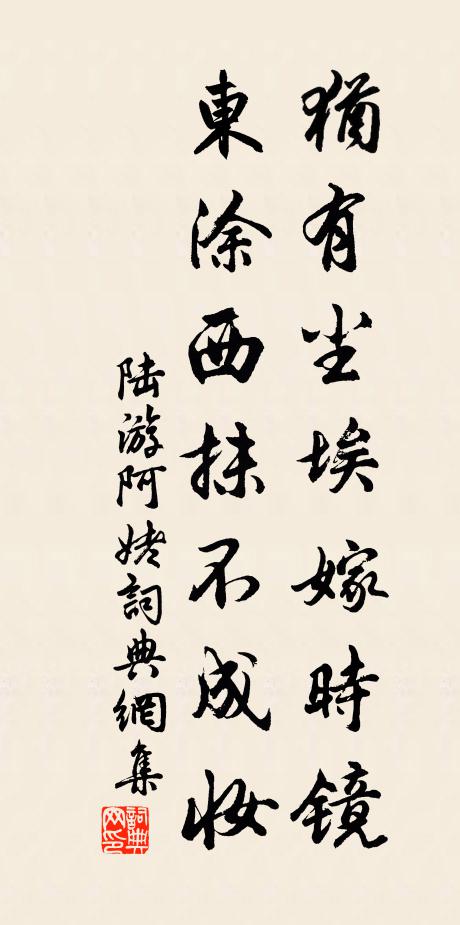 猶有尘埃嫁時镜
東涂西抹不成妆
陆游阿姥詞典網集
詞典网印